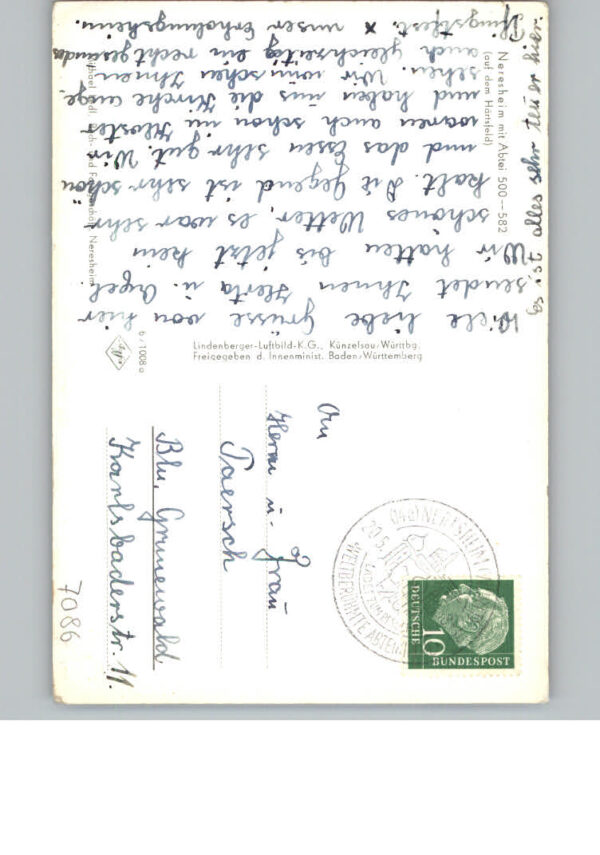 Viele liebe Grüsse von hier
sendet Ihnen Herta u. Opel
Wir hatten bis jetzt kein
schönes Wetter, es war sehr
kalt. Die Gegend ist sehr schön
und das Essen sehr gut. Wir
waren auch schon im Kloster
und haben uns die Kirche ange
sehen. Wir wünschen Ihnen
auch gleichzeitig ein recht gesundes
Pfingstfest. x unser Erholungsheim.
es ist alles sehr teuer hier
Neresheim mit Abtei 500—582
(auf dem Härtsfeld)
Buch- und Neresheim
Lindenberger-Luftbild-K.G., Künzelsau/Württbg.
Freigegeben d. Innenminist. Baden/Württemberg
Agfa
b/1008 a
An
Herrn u. Frau
Paersch
Bln. Grunewald
Karlsbaderstr. 11.
7086
NERESHEIM
20.5.
WELTBERÜHMTE ABTEI
10
DEUTSCHE
BUNDESPOST